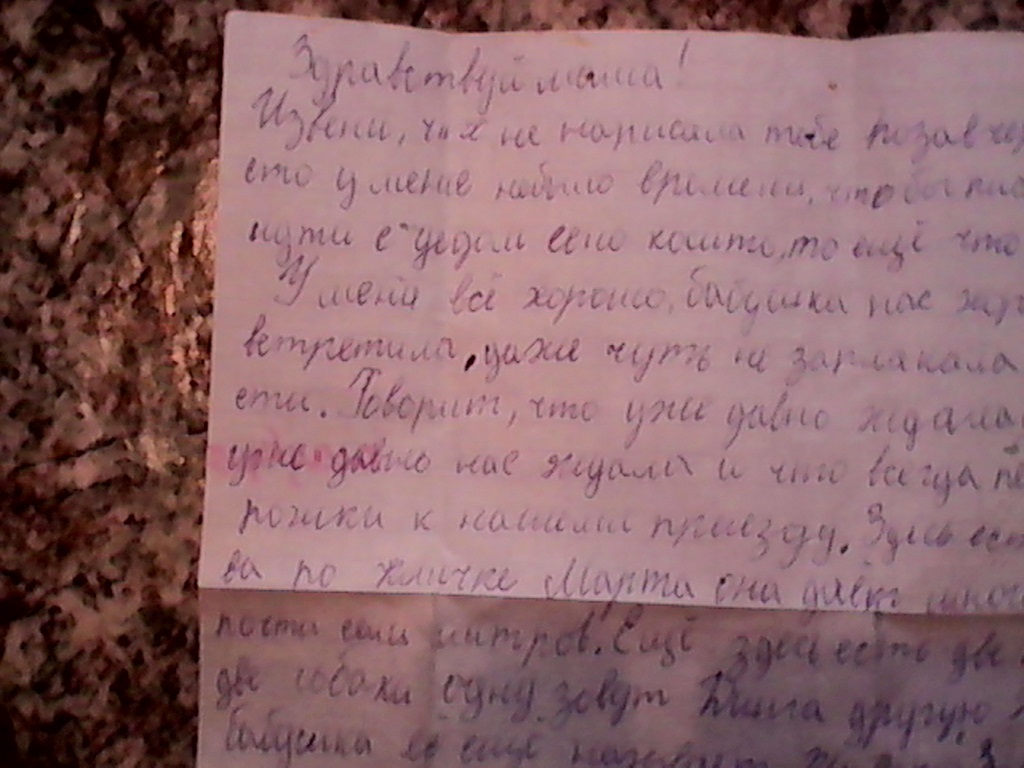 Здравствуй мама!
Извени, что я не написала тебе позавчер
сто у меня небыло времени, чтобы пис
идти с дедом сено косить, то ещё что
У меня всё хорошо, бабушка нас
встретила, даже чуть не заплакала
сти. Говорит, что уже давно ждала
уже давно нас ждала и что всегда пе
рожки к нашему приезду. Здесь ест
ва по кличке Марта она даёт
почти семь литров. Ещё здесь есть две
две собаки одну зовут другую
бабушка её ещё называет